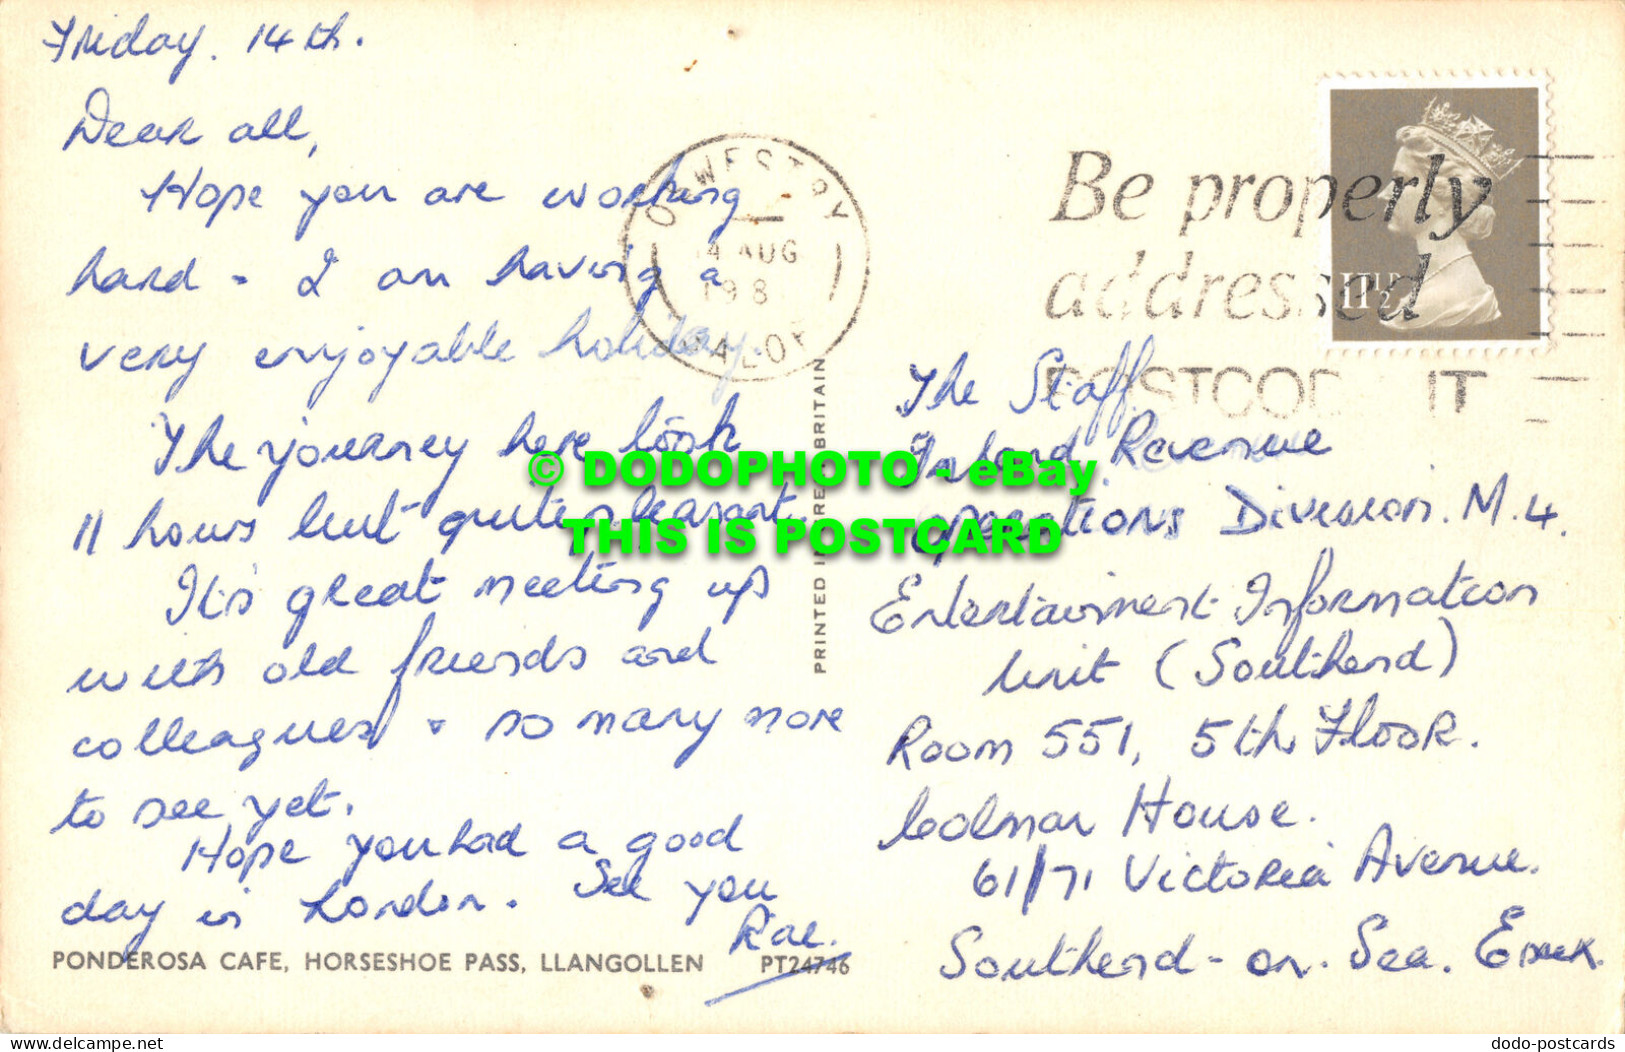 Friday. 14th.
Dear all,
Hope you are working
hard - I am having a
very enjoyable holiday.
The journey here took
11 hours but quite pleasant.
It's great meeting up
with old friends and
colleagues - so many more
to see yet.
Hope you had a good
day in London. See you
Rae.
PONDEROSA CAFE, HORSESHOE PASS, LLANGOLLEN PT24746
PRINTED IN GREAT BRITAIN
OSWESTRY
14 AUG
198
SALOP
Be properly
addressed
POSTCODE IT
11½P
The Staff
Inland Revenue
Operations Division. M.4.
Entertainment Information
Unit (Southend)
Room 551, 5th Floor.
Colmar House.
61/71 Victoria Avenue.
Southend-on-Sea. Essex.
© DODOPHOTO - eBay
THIS IS POSTCARD
delcampe.net
dodo-postcards